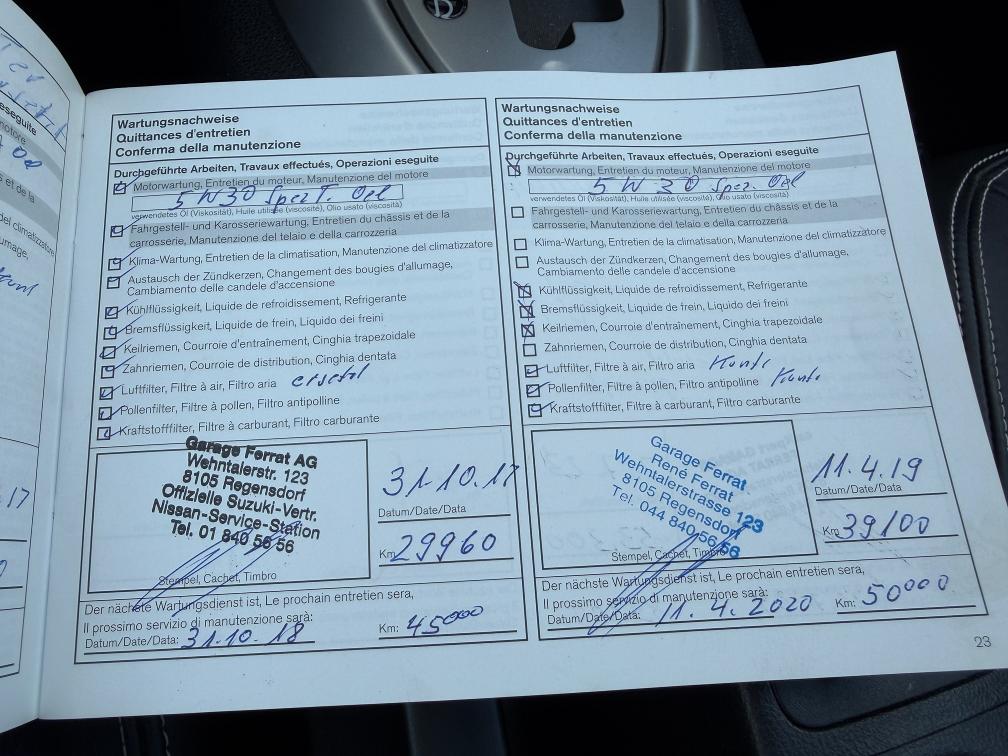 Wartungsnachweise
Quittances d'entretien
Conferma della manutenzione
Durchgeführte Arbeiten, Travaux effectués, Operazioni eseguite
Motorwartung, Entretien du moteur, Manutenzione del motore
5 W 30 Spez. Oel
verwendetes Öl (Viskosität), Huile utilisée (viscosité), Olio usato (viscosità)
Fahrgestell- und Karosseriewartung, Entretien du châssis et de la
carrosserie, Manutenzione del telaio e della carrozzeria
Klima-Wartung, Entretien de la climatisation, Manutenzione del climatizzatore
Austausch der Zündkerzen, Changement des bougies d'allumage,
Cambiamento delle candele d'accensione
Kühlflüssigkeit, Liquide de refroidissement, Refrigerante
Bremsflüssigkeit, Liquide de frein, Liquido dei freini
Keilriemen, Courroie d'entraînement, Cinghia trapezoidale
Zahnriemen, Courroie de distribution, Cinghia dentata
Luftfilter, Filtre à air, Filtro aria ersetzt
Pollenfilter, Filtre à pollen, Filtro antipolline
Kraftstofffilter, Filtre à carburant, Filtro carburante
Garage Ferrat AG
Wehntalerstr. 123
8105 Regensdorf
Offizielle Suzuki-Vertr.
Nissan-Service-Station
Tel. 01 840 56 56
Stempel, Cachet, Timbro
31.10.17
Datum/Date/Data
Km 29960
Der nächste Wartungsdienst ist, Le prochain entretien sera,
Il prossimo servizio di manutenzione sarà:
Datum/Date/Data: 31.10.18 Km: 45000
Wartungsnachweise
Quittances d'entretien
Conferma della manutenzione
Durchgeführte Arbeiten, Travaux effectués, Operazioni eseguite
Motorwartung, Entretien du moteur, Manutenzione del motore
5 W 30 Spez. Oel
verwendetes Öl (Viskosität), Huile utilisée (viscosité), Olio usato (viscosità)
Fahrgestell- und Karosseriewartung, Entretien du châssis et de la
carrosserie, Manutenzione del telaio e della carrozzeria
Klima-Wartung, Entretien de la climatisation, Manutenzione del climatizzatore
Austausch der Zündkerzen, Changement des bougies d'allumage,
Cambiamento delle candele d'accensione
Kühlflüssigkeit, Liquide de refroidissement, Refrigerante
Bremsflüssigkeit, Liquide de frein, Liquido dei freini
Keilriemen, Courroie d'entraînement, Cinghia trapezoidale
Zahnriemen, Courroie de distribution, Cinghia dentata
Luftfilter, Filtre à air, Filtro aria
Pollenfilter, Filtre à pollen, Filtro antipolline
Kraftstofffilter, Filtre à carburant, Filtro carburante
Garage Ferrat
René Ferrat
Wehntalerstrasse 123
8105 Regensdorf
Tel. 044 840 56 56
Stempel, Cachet, Timbro
11.4.19
Datum/Date/Data
Km 39100
Der nächste Wartungsdienst ist, Le prochain entretien sera,
Il prossimo servizio di manutenzione sarà:
Datum/Date/Data: 11.4.2020 Km: 50000
23